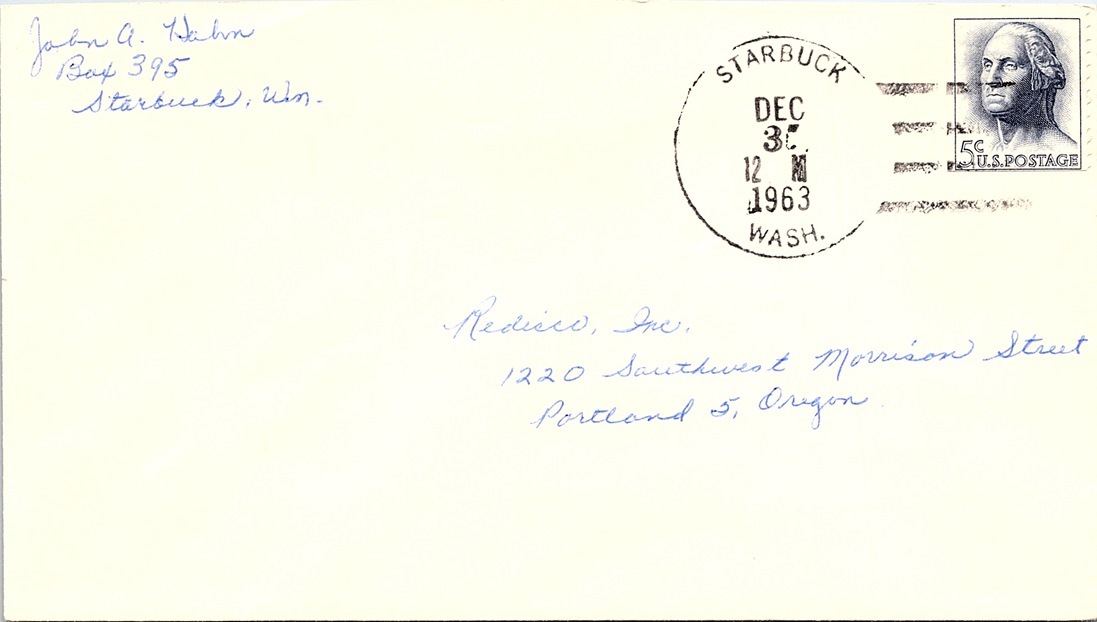 John A. Hahn
Box 395
Starbuck, Wn.
STARBUCK
DEC
30
12 M
1963
WASH.
5c
U.S. POSTAGE
Redisco, Inc.
1220 Southwest Morrison Street
Portland 5, Oregon